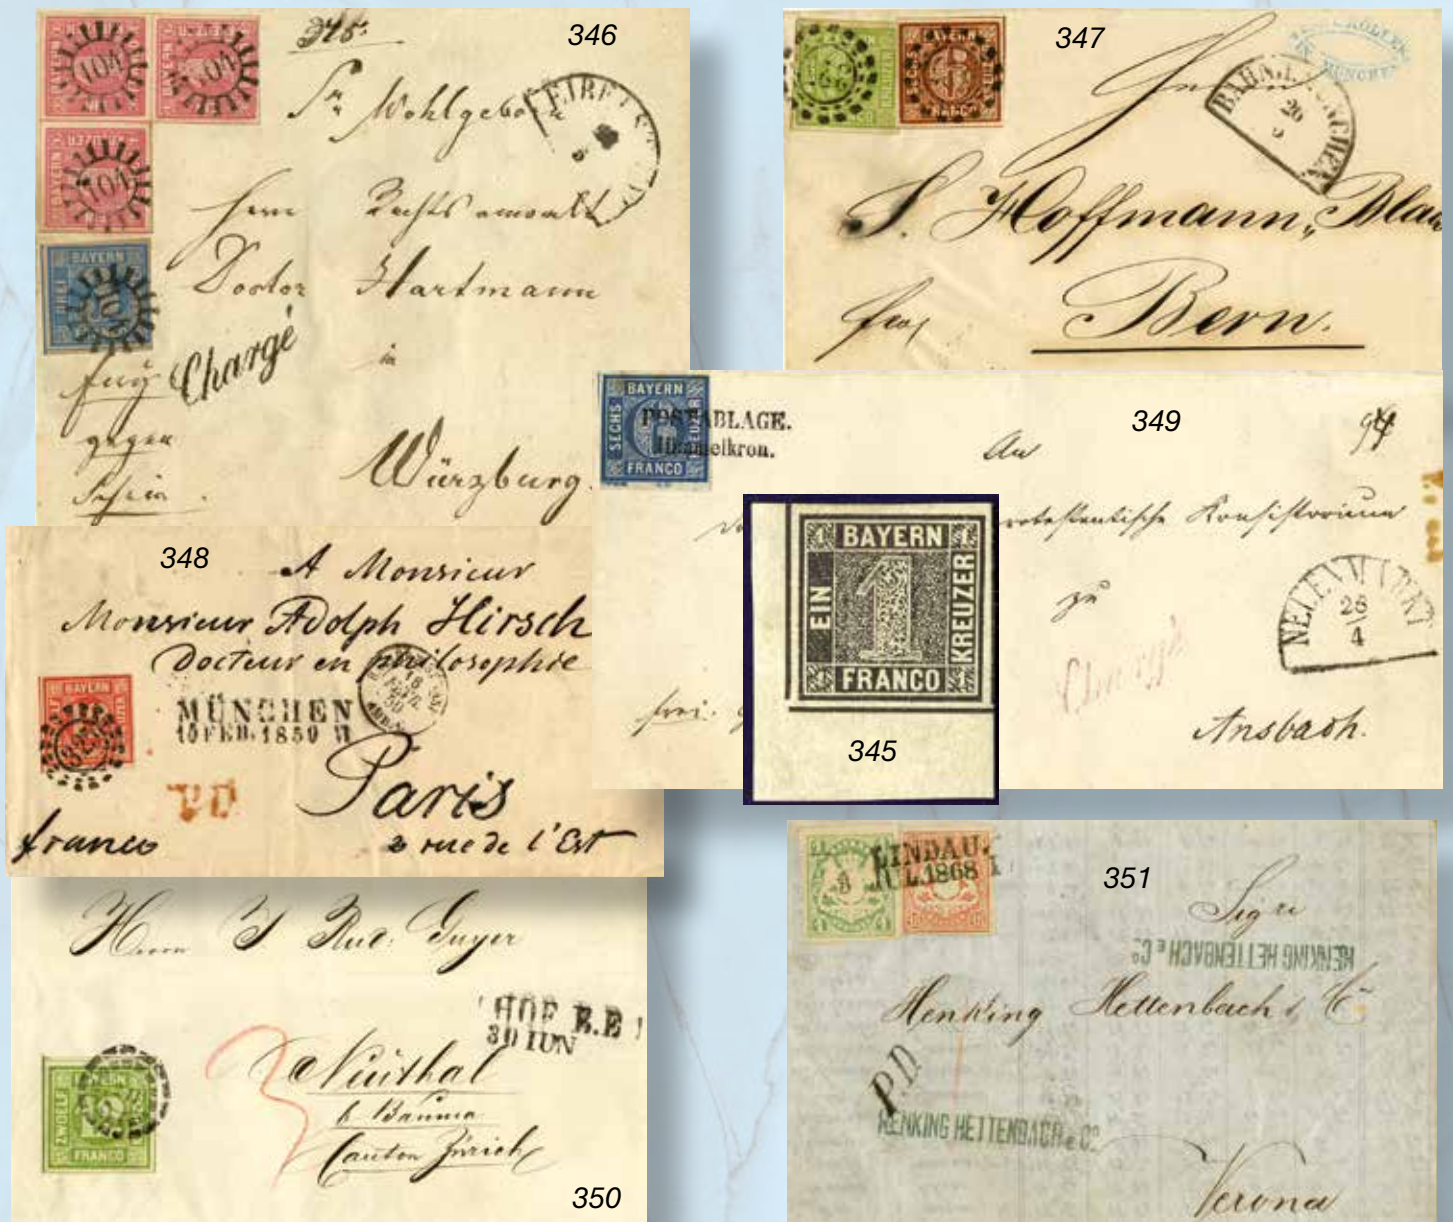 346
345.
104
104
104
BAYERN
Sr. Wohlgeborn
Herrn Rechtsanwalt
Doctor Hartmann
in
Chargé
gegen
Schein.
Würzburg.
347
BAHNH. MÜNCHEN
26
S. Hoffmann, Blau
Bern.
349
BAYERN
SECHS
KREUZER
FRANCO
POSTABLAGE.
Himmelkron.
An
protestantische Konsistorium
zu
NEUENMARKT
26
4
Chargé
frei.
Ansbach.
345
1 BAYERN 1
EIN
1
KREUZER
1 FRANCO 1
348
A Monsieur
Monsieur Adolph Hirsch
Docteur en philosophie
BAYERN
MÜNCHEN
10 FEB. 1859 VI
P.D.
Paris
franco
3 rue de l'Est
350
Herrn J Rud. Guyer
HOF B.B
30 IUN
3
Neuthal
b. Bauma
Canton Zürich
BAYERN
ZWÖLF
FRANCO
351
LINDAU.
JUL. 1868 I
Sigri
HENKING HETTENBACH & Co
Henking Hettenbach & Co
P.D.
HENKING HETTENBACH & Co
Verona